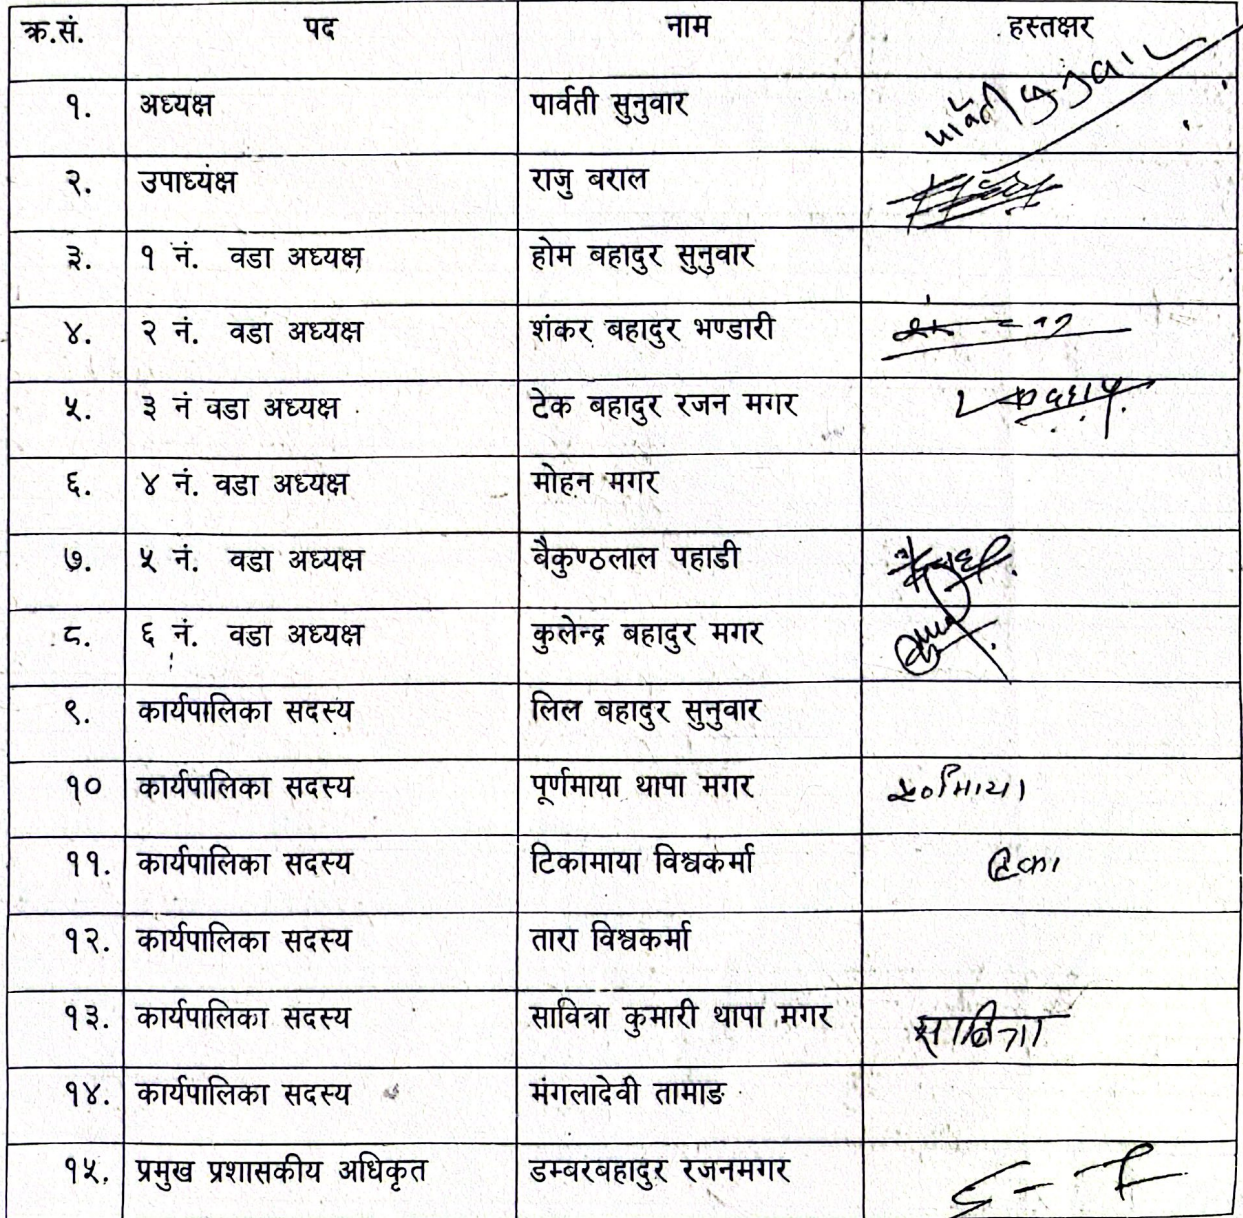 क्र.सं. पद नाम हस्तक्षर
१. अध्यक्ष पार्वती सुनुवार पार्वती सुनुवार
२. उपाध्यंक्ष राजु बराल
३. १ नं. वडा अध्यक्ष होम बहादुर सुनुवार
४. २ नं. वडा अध्यक्ष शंकर बहादुर भण्डारी
५. ३ नं वडा अध्यक्ष टेक बहादुर रजन मगर
६. ४ नं. वडा अध्यक्ष मोहन मगर
७. ५ नं. वडा अध्यक्ष बैकुण्ठलाल पहाडी
८. ६ नं. वडा अध्यक्ष कुलेन्द्र बहादुर मगर
९. कार्यपालिका सदस्य लिल बहादुर सुनुवार
१० कार्यपालिका सदस्य पूर्णमाया थापा मगर
११. कार्यपालिका सदस्य टिकामाया विश्वकर्मा टिका
१२. कार्यपालिका सदस्य तारा विश्वकर्मा
१३. कार्यपालिका सदस्य सावित्रा कुमारी थापा मगर सावित्रा
१४. कार्यपालिका सदस्य मंगलादेवी तामाङ
१५. प्रमुख प्रशासकीय अधिकृत डम्वरबहादुर रजनमगर